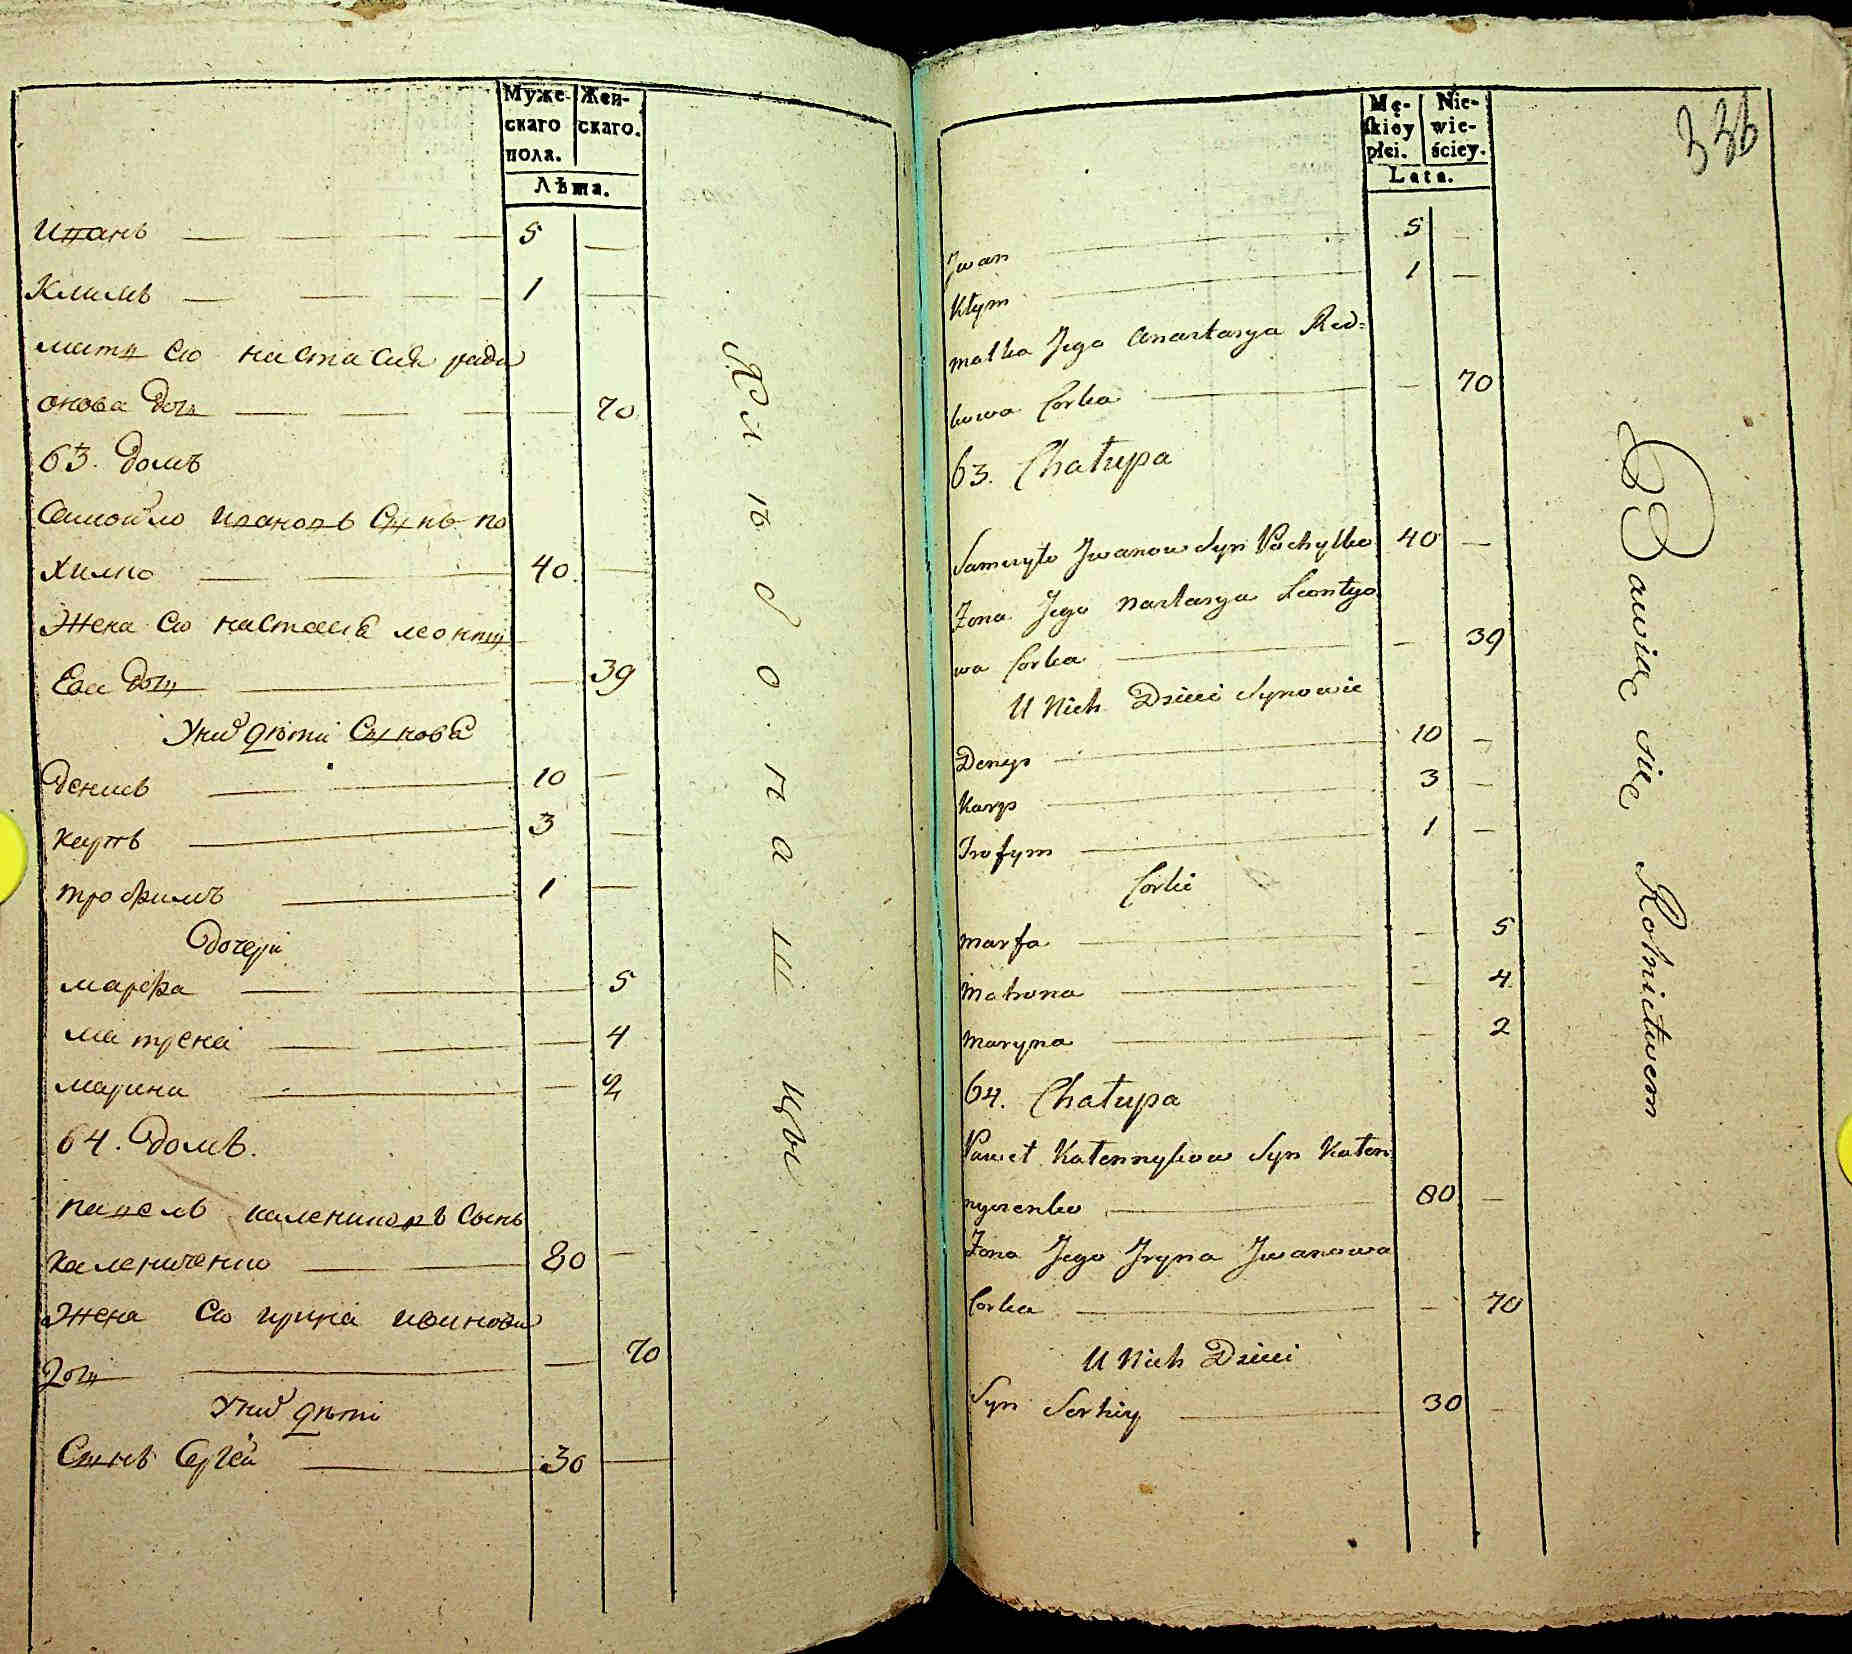 Муже-
скаго
пола.
Жен-
скаго.
Лѣта.
Иванъ 5
Климъ 1
мать єго настасия ради
онова дочь 70
63. домъ
Самойло Ивановъ Сынъ по
хилко 40
Жена єго настасиѣ леонтъ
Ева дочь 39
Унихъ дѣти Сыновѣ
денисъ 10
карпъ 3
трофимъ 1
дочери
марфа 5
матрена 4
марина 2
64. домъ.
павелъ калениковъ сынъ
каленниченко 80
Жена єго ирина иванова
дочь 70
Унихъ дѣти
Сынъ Сергей 30
Хлѣбопашцы
Mę-
skiey
płci.
Nie-
wie-
ściey.
Lata.
336
Jwan 5
Kłym 1
matka Jego Anastasya Red-
kowa Corka 70
63. Chałupa
Samuyło Jwanow Syn Pochylko 40
Żona Jego Nastasya Leontyo
wa Corka 39
U Nich Dzieci Synowie
Denys 10
Karp 3
Trofym 1
Corki
Marfa 5
Matrona 4
Maryna 2
64. Chałupa
Paweł Kalennykow Syn Kalen
nyczenko 80
Żona Jego Jryna Jwanowa
Corka 70
U Nich Dzieci
Syn Serhiy 30
Bawiąc się Rolnictwem